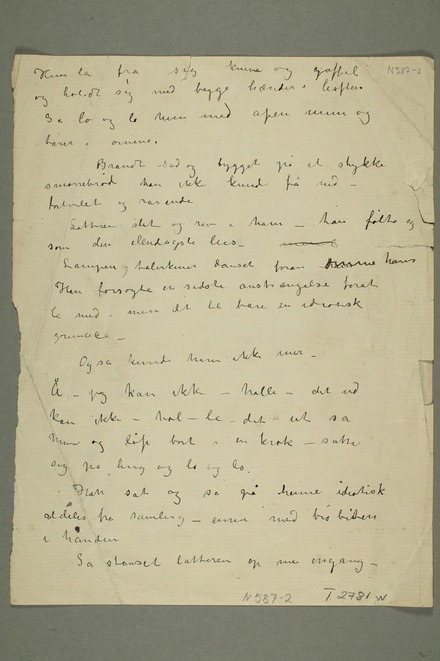 N587-2
Hun la fra seg kniven og gaffel
og holdt sig med begge hænder i hoften
Sa lo og lo hun med åpen mun og
tårer i øinene.
Brandt sad og tygget på et stykke
smørrebrød han ikke kund få ned –
fortvilet og rasende
Latteren slet og rev i ham – han følte
som den elendigste
Lampen og talerkener danset foran hans
Han forsøgte en sidste anstrængelse forat
le med – men det ble bare en idiotisk
grimace –
Og så kund hun ikke mer –
Å – jeg kan ikke – holle – det ud
kan ikke – hol – le – det – ut sa
hun og løp bort i en krok – satte
sig på hug og lo og lo.
Han sat og sa på henne idiotisk
aldeles fra samling – ennu med
i hånden
Sa stanset latteren op me engang –
N587-2 T 2781